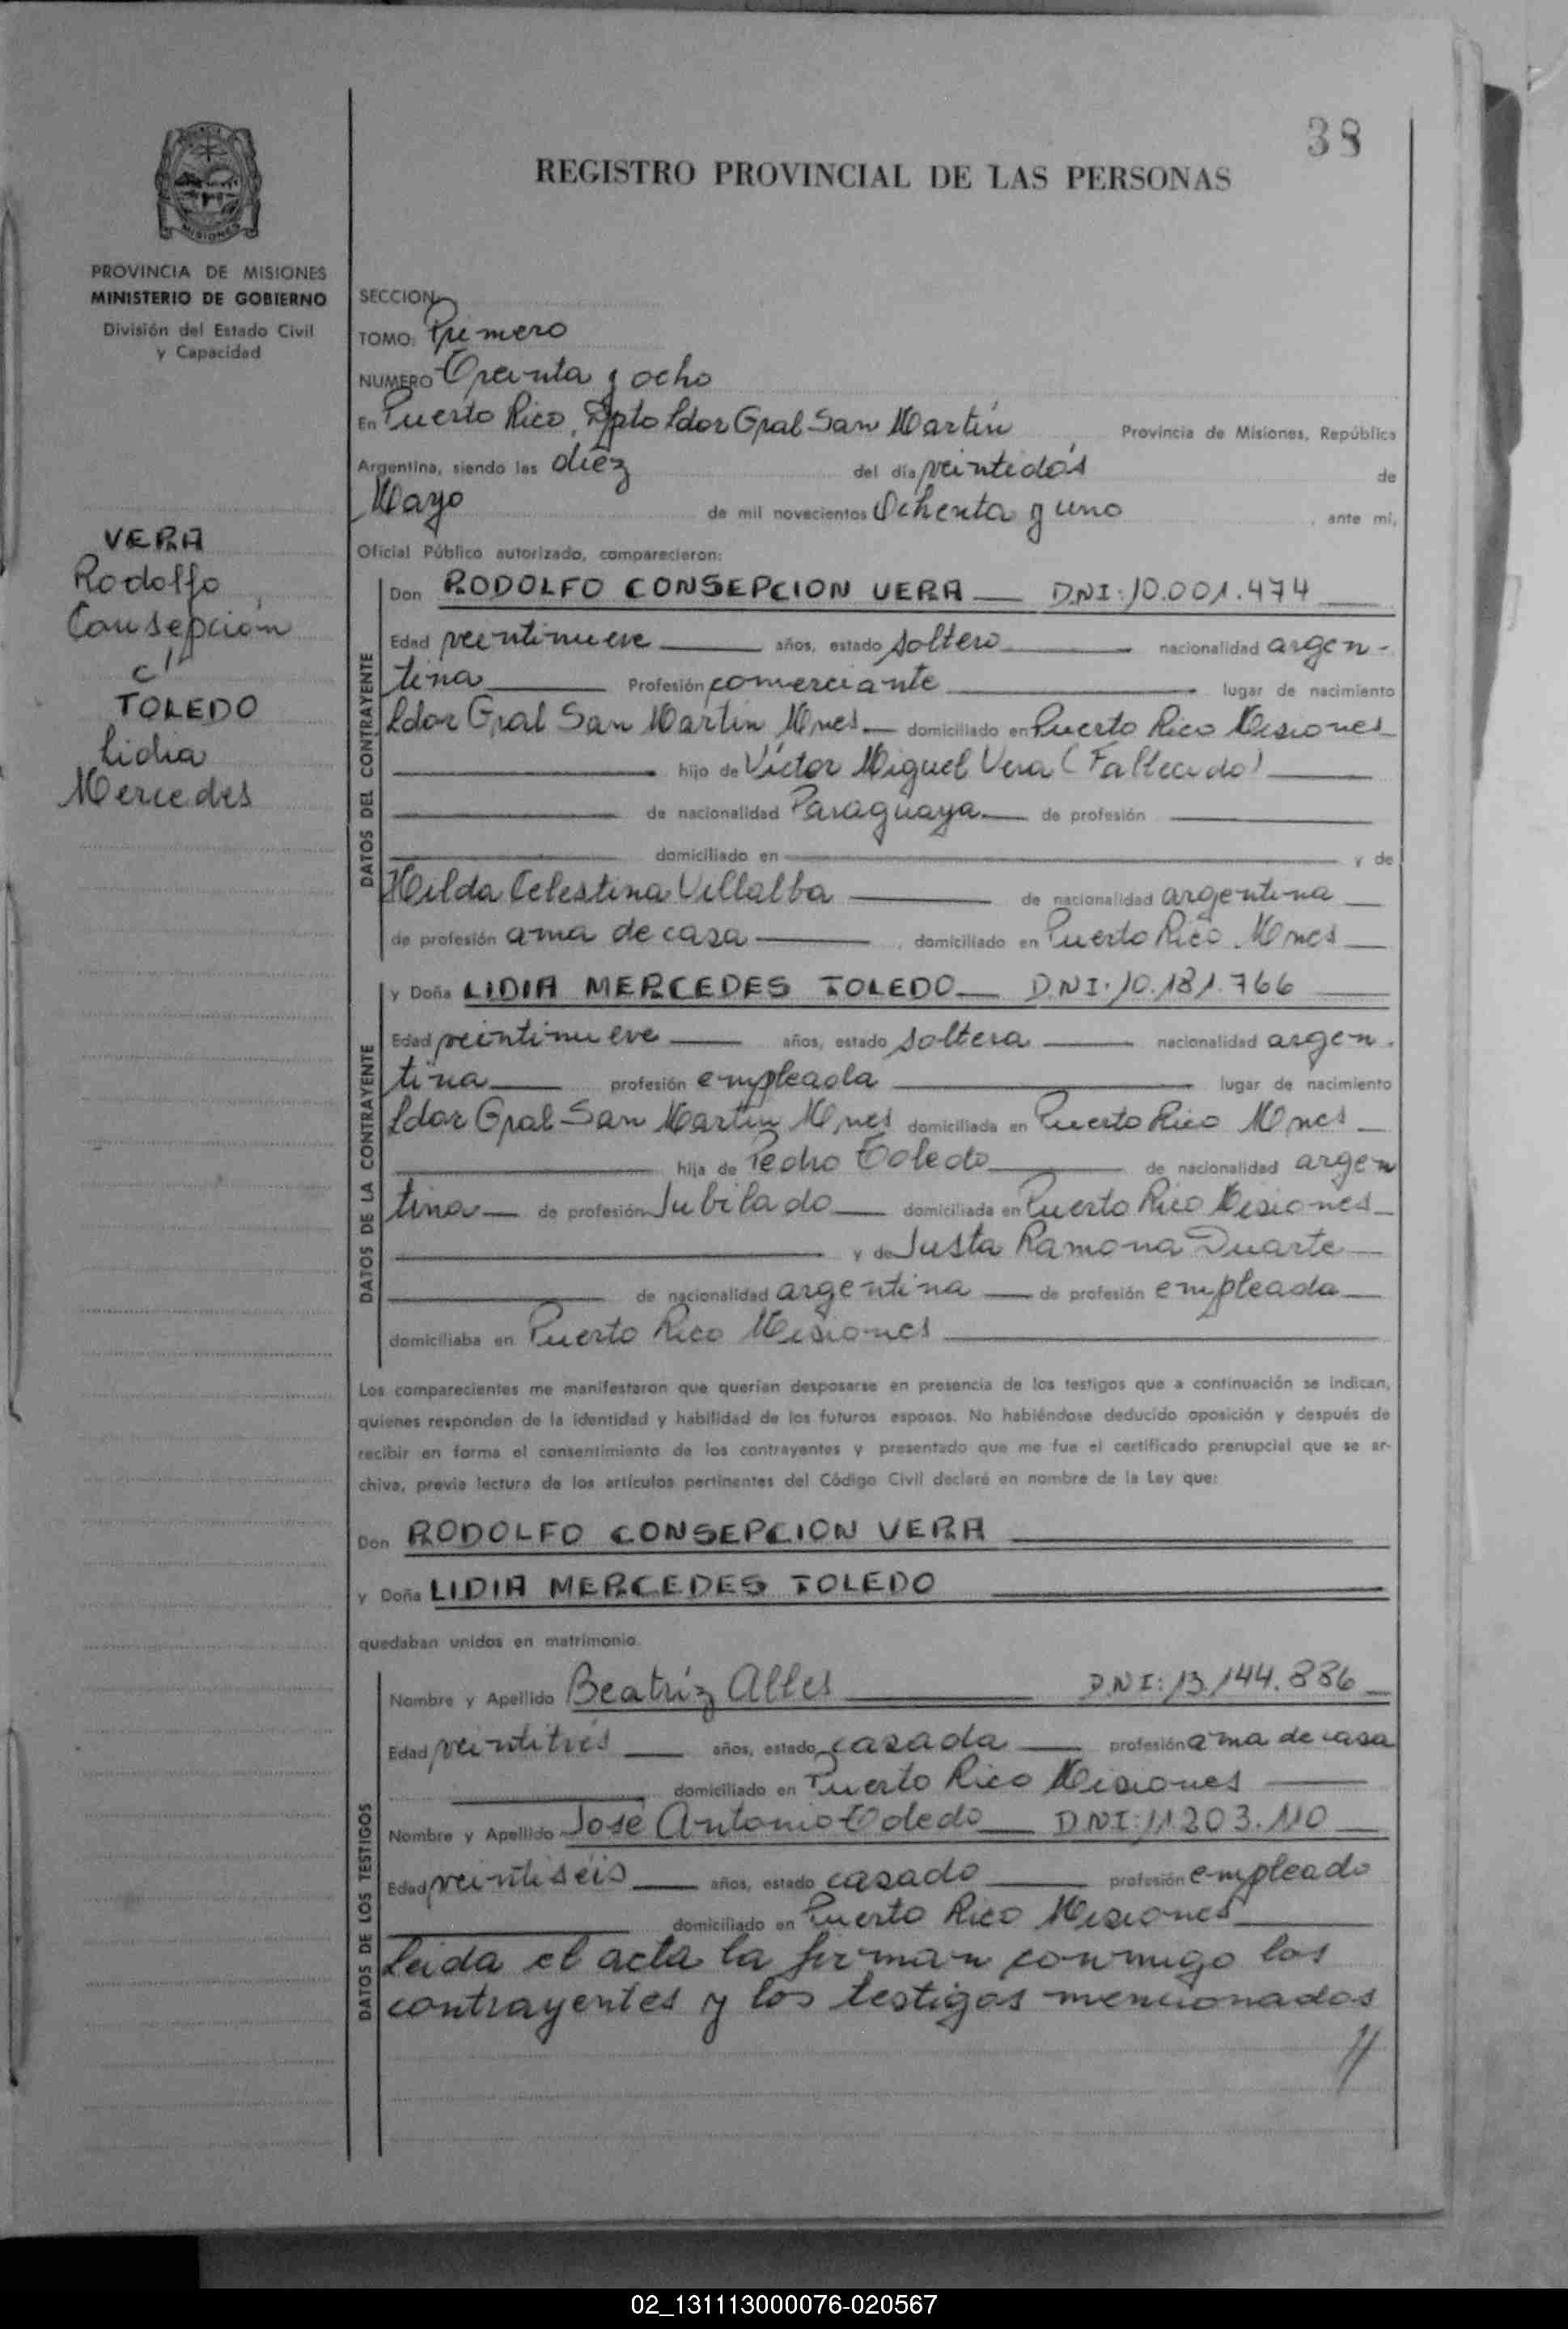 38
REGISTRO PROVINCIAL DE LAS PERSONAS
MISIONES
PROVINCIA DE MISIONES
MINISTERIO DE GOBIERNO
División del Estado Civil
y Capacidad
VERA
Rodolfo
Consepción
c/
TOLEDO
Lidia
Mercedes
SECCION
TOMO: Primero
NUMERO Treinta y ocho
En Puerto Rico, Dpto Ldor Gral San Martín, Provincia de Misiones, República
Argentina, siendo las diez del día veintidós de
Mayo de mil novecientos Ochenta y uno, ante mí,
Oficial Público autorizado, comparecieron:
DATOS DEL CONTRAYENTE
Don RODOLFO CONSEPCION VERA DNI: 10.001.474
Edad veintinueve años, estado soltero nacionalidad argen-
tina Profesión comerciante lugar de nacimiento
Ldor Gral San Martin Mnes domiciliado en Puerto Rico Misiones
hijo de Víctor Miguel Vera (Fallecido)
de nacionalidad Paraguaya de profesión
domiciliado en y de
Hilda Celestina Villalba de nacionalidad argentina
de profesión ama de casa, domiciliado en Puerto Rico Mnes
DATOS DE LA CONTRAYENTE
y Doña LIDIA MERCEDES TOLEDO DNI. 10.181.766
Edad veintinueve años, estado soltera nacionalidad argen-
tina profesión empleada lugar de nacimiento
Ldor Gral San Martin Mnes domiciliada en Puerto Rico Mnes
hija de Pedro Toledo de nacionalidad argen
tina de profesión Jubilado domiciliada en Puerto Rico Misiones
y de Justa Ramona Duarte
de nacionalidad argentina de profesión empleada
domiciliaba en Puerto Rico Misiones
Los comparecientes me manifestaron que querían desposarse en presencia de los testigos que a continuación se indican,
quienes responden de la identidad y habilidad de los futuros esposos. No habiéndose deducido oposición y después de
recibir en forma el consentimiento de los contrayentes y presentado que me fue el certificado prenupcial que se ar-
chiva, previa lectura de los artículos pertinentes del Código Civil declaré en nombre de la Ley que:
Don RODOLFO CONSEPCION VERA
y Doña LIDIA MERCEDES TOLEDO
quedaban unidos en matrimonio.
DATOS DE LOS TESTIGOS
Nombre y Apellido Beatríz Alles DNI: 13.144.886
Edad veintitrés años, estado casada profesión ama de casa
domiciliado en Puerto Rico Misiones
Nombre y Apellido José Antonio Toledo DNI: 11.203.110
Edad veintiséis años, estado casado profesión empleado
domiciliado en Puerto Rico Misiones
Leida el acta la firman conmigo los
contrayentes y los testigos mencionados
//
02_131113000076-020567